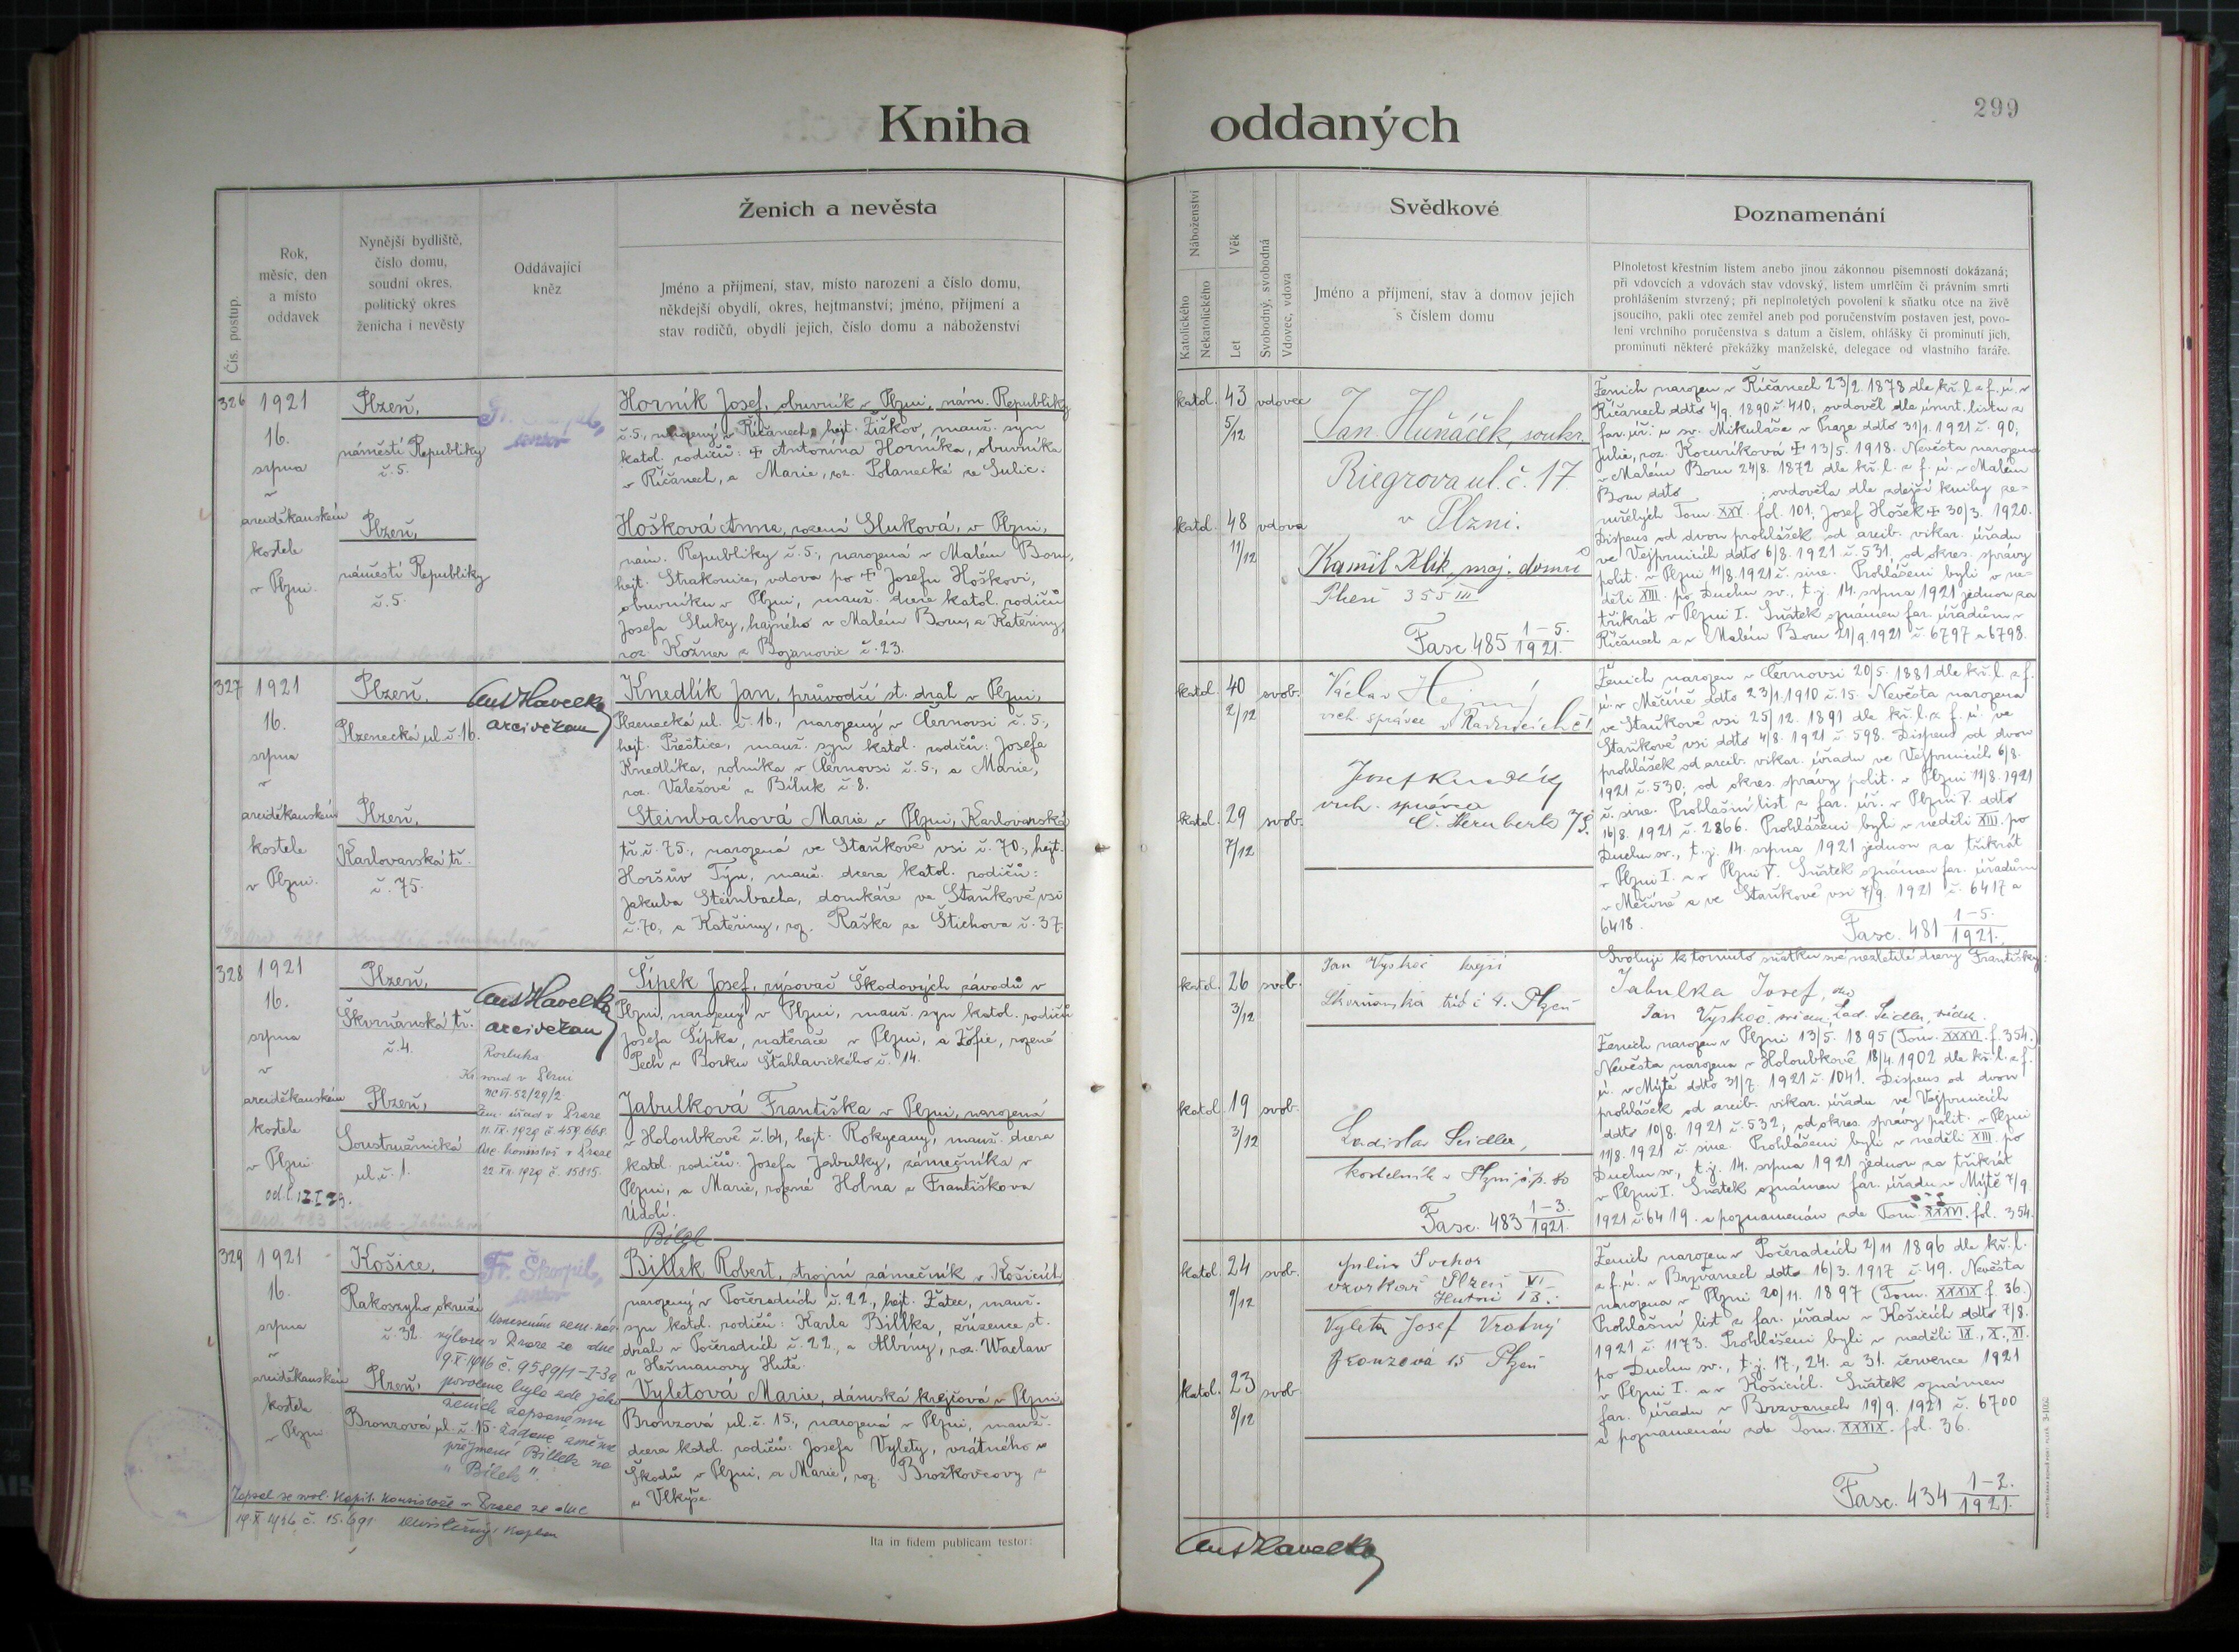 Kniha oddaných
299
Čís. postup.
Rok,
měsíc, den
a místo
oddavek
Nynější bydliště,
číslo domu,
soudní okres,
politický okres
ženicha i nevěsty
Oddávající
kněz
Ženich a nevěsta
Jméno a příjmení, stav, místo narození a číslo domu,
někdejší obydlí, okres, hejtmanství; jméno, příjmení a
stav rodičů, obydlí jejich, číslo domu a náboženství
Náboženství
Katolického
Nekatolického
Věk
Let
Svobodný, svobodná
Vdovec, vdova
Svědkové
Jméno a příjmení, stav a domov jejich
s číslem domu
Poznamenání
Plnoletost křestním listem anebo jinou zákonnou písemností dokázaná;
při vdovcích a vdovách stav vdovský, listem umrlčím či právním smrti
prohlášením stvrzený; při neplnoletých povolení k sňatku otce na živě
jsoucího, pakli otec zemřel aneb pod poručenstvím postaven jest, povo-
lení vrchního poručenstva s datum a číslem, ohlášky či prominutí jich,
prominutí některé překážky manželské, delegace od vlastního faráře.
326
1921
16.
srpna
v
arciděkanském
kostele
v Plzni.
Plzeň,
náměstí Republiky
č. 5.
Plzeň,
náměstí Republiky
č. 5.
Horník Josef, obuvník v Plzni, nám. Republiky
č. 5., narozený v Říčanech, hejt. Žižkov, manž. syn
katol. rodičů: + Antonína Horníka, obuvníka
v Říčanech, a Marie, roz. Polanecké ze Sulic.
Hošková Anna, rozená Sluková, v Plzni,
nám. Republiky č. 5., narozená v Malém Boru,
hejt. Strakonice, vdova po + Josefu Hoškovi,
obuvníku v Plzni, manž. dcera katol. rodičů
Josefa Sluky, hajného v Malém Boru, a Kateřiny,
roz. Kožner z Bojanovic č. 23.
katol. 43 5/12 vdovec
katol. 48 11/12 vdova
Jan Huňáček, soukr.
Riegrova ul. č. 17
v Plzni.
Kamil Klik, maj. domu
Plzeň 355 III
Fasc. 485 1-5. 1921.
Ženich narozen v Říčanech 23/2. 1878 dle kř. l. z f. ú. v
Říčanech ddto 4/9. 1890 č. 410, ovdověl dle úmrt. listu z
far. úř. u sv. Mikuláše v Praze ddto 31/1. 1921 č. 90;
Julie, roz. Kocuríková + 13/5. 1918. Nevěsta narozena
v Malém Boru 24/8. 1872 dle kř. l. z f. ú. v Malém
Boru ddto ; ovdověla dle zdejší knihy ze-
mřelých Tom. XXV. fol. 101, Josef Hošek + 30/3. 1920.
Dispens od dvou prohlášek od arcib. vikar. úřadu
ve Vejprnicích ddto 6/8. 1921 č. 531, od okres. správy
polit. v Plzni 11/8. 1921 č. sine. Prohlášeni byli v ne-
děli XIII. po Duchu sv., t. j. 14. srpna 1921 jednou za
třikrát v Plzni I. Sňatek oznámen far. úřadům v
Říčanech a v Malém Boru 21/9. 1921 č. 6797 a 6798.
327
1921
16.
srpna
v
arciděkanském
kostele
v Plzni.
Plzeň,
Plzenecká ul. č. 16.
Plzeň,
Karlovarská tř.
č. 75.
Ant Havelka
arciděkan
Knedlík Jan, průvodčí st. drah v Plzni,
Plzenecká ul. č. 16., narozený v Černovsi č. 5.,
hejt. Přeštice, manž. syn katol. rodičů: Josefa
Knedlíka, rolníka v Černovsi č. 5., a Marie,
roz. Valešové z Biluk č. 8.
Steinbachová Marie v Plzni, Karlovarská
tř. č. 75., narozená ve Staňkově vsi č. 70., hejt.
Horšův Týn, manž. dcera katol. rodičů:
Jakuba Steinbacha, domkáře ve Staňkově vsi
č. 70, a Kateřiny, roz. Raška ze Štichova č. 37.
katol. 40 2/12 svob.
katol. 29 7/12 svob.
Václav Hejný
vrch. správce v
Josef Knedlík
vrch. správce
Fasc. 481 1-5. 1921.
Ženich narozen v Černovsi 20/5. 1881 dle kř. l. z f.
ú. v Měčíně ddto 23/1. 1910 č. 15. Nevěsta narozena
ve Staňkově vsi 25/12. 1891 dle kř. l. z f. ú. ve
Staňkově vsi ddto 4/8. 1921 č. 598. Dispens od dvou
prohlášek od arcib. vikar. úřadu ve Vejprnicích 6/8.
1921 č. 530, od okres. správy polit. v Plzni 11/8. 1921
č. sine. Prohlašní list z far. úř. v Plzni V. ddto
16/8. 1921 č. 2866. Prohlášeni byli v neděli XIII. po
Duchu sv., t. j. 14. srpna 1921 jednou za třikrát
v Plzni I. a v Plzni V. Sňatek oznámen far. úřadům
v Měčíně a ve Staňkově vsi 7/9. 1921 č. 6417 a
6418.
328
1921
16.
srpna
v
arciděkanském
kostele
v Plzni.
Plzeň,
Škvrňanská tř.
č. 4.
Plzeň,
Soustružnická
ul. č. 1.
Ant Havelka
arciděkan
Rozluka
Kr. soud v Plzni
Zem. úřad v Praze
11. IX. 1929 č. 459.668
Arc. konsistoř v Praze
22. XII. 1929 č. 15815.
Šípek Josef, rýsovač Škodových závodů v
Plzni, narozený v Plzni, manž. syn katol. rodičů
Josefa Šípka, natěrače v Plzni, a Žofie, rozené
Pech z Borku Šťáhlavického č. 14.
Jabulková Františka v Plzni, narozená
v Holoubkově č. 64, hejt. Rokycany, manž. dcera
katol. rodičů: Josefa Jabulky, zámečníka v
Plzni, a Marie, rozené Holna z Františkova
Údolí.
katol. 26 3/12 svob.
katol. 19 3/12 svob.
Jan Vyskoč krejčí
Škvrňanská tříd č 4. Plzeň
Ladislav Seidler,
kostelník v Plzni č.p. 80
Fasc. 483 1-3. 1921.
Svoluji k tomuto sňatku své nezletilé dcery Františky:
Jabulka Josef, otec
Jan Vyskoč, svědek, Lad. Seidler, svědek.
Ženich narozen v Plzni 13/5. 1895 (Tom. XXXVI. f. 354.)
Nevěsta narozena v Holoubkově 18/4. 1902 dle kř. l. z f.
ú. v Mýtě ddto 31/7. 1921 č. 1041. Dispens od dvou
prohlášek od arcib. vikar. úřadu ve Vejprnicích
ddto 10/8. 1921 č. 532, od okres. správy polit. v Plzni
11/8. 1921 č. sine. Prohlášeni byli v neděli XIII. po
Duchu sv., t. j. 14. srpna 1921 jednou za třikrát
v Plzni I. Sňatek oznámen far. úřadu v Mýtě 7/9.
1921 č. 6419. a poznamenán zde Tom. XXXVI. fol. 354.
329
1921
16.
srpna
v
arciděkanském
kostele
v Plzni
Košice,
Rakoszyho okružní
č. 32.
Plzeň,
Bronzová ul. č. 15.
Fr. Škorpil,
Usnesením zem. nár.
výboru v Praze ze dne
povoleno bylo zde jako
ženich zapsanému
žádané změně
příjmení Billek na
"Bílek".
Zapsal se svol. kapit. konsistoře v Praze ze dne
19. X. 1946 č. 15.691 kaplan
Bílek
Billek Robert, strojní zámečník v Košicích
narozený v Počeradech č. 22., hejt. Žatec, manž.
syn katol. rodičů: Karla Billka, zřízence st.
drah v Počeradech č. 22., a Albíny, roz. Waclaw
z Heřmanovy Huti.
Vyletová Marie, dámská krejčová v Plzni,
Bronzová ul. č. 15., narozená v Plzni, manž.
dcera katol. rodičů: Josefa Vylety, vrátného u
Škodů v Plzni, a Marie, roz. Brožkovcovy
z Vlkýše.
Ita in fidem publicam testor:
katol. 24 9/12 svob.
katol. 23 8/12 svob.
Julius Suchor
vzorkař Plzeň VI
Hutní 13.
Vyleta Josef Vrátný
Bronzová 15 Plzeň
Ženich narozen v Počeradech 2/11 1896 dle kř. l.
z f. ú. v Brzvanech ddto 16/3. 1917 č. 49. Nevěsta
narozena v Plzni 20/11. 1897 (Tom. XXXIX f. 36.)
Prohlašní list z far. úřadu v Košicích ddto 7/8.
1921 č. 1173. Prohlášeni byli v neděli IX., X., XI.
po Duchu sv., t. j. 17., 24. a 31. července 1921
v Plzni I. a v Košicích. Sňatek oznámen
far. úřadu v Brzvanech 19/9. 1921 č. 6700
a poznamenán zde Tom. XXXIX. fol. 36.
Fasc. 434 1-2. 1921.
Ant Havelka